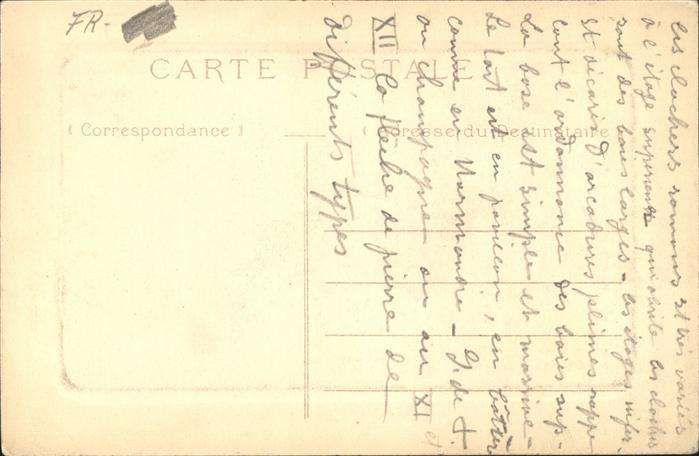 FR-
CARTE POSTALE
( Correspondance )
( Adresse du Destinataire
les clochers romans st très variés
à l'étage supérieur qui abrite les cloches
sont des baies larges - les étages infer.
st décorés d'arcatures pleines rapp
tant l'ordonnance des baies sup-
La base est simple et massive -
Le toit est en pavillon, en bâtière
comme en Normandie - J. de F.
ou champagne ou au XI et
XII la flèche de pierre de
différents types